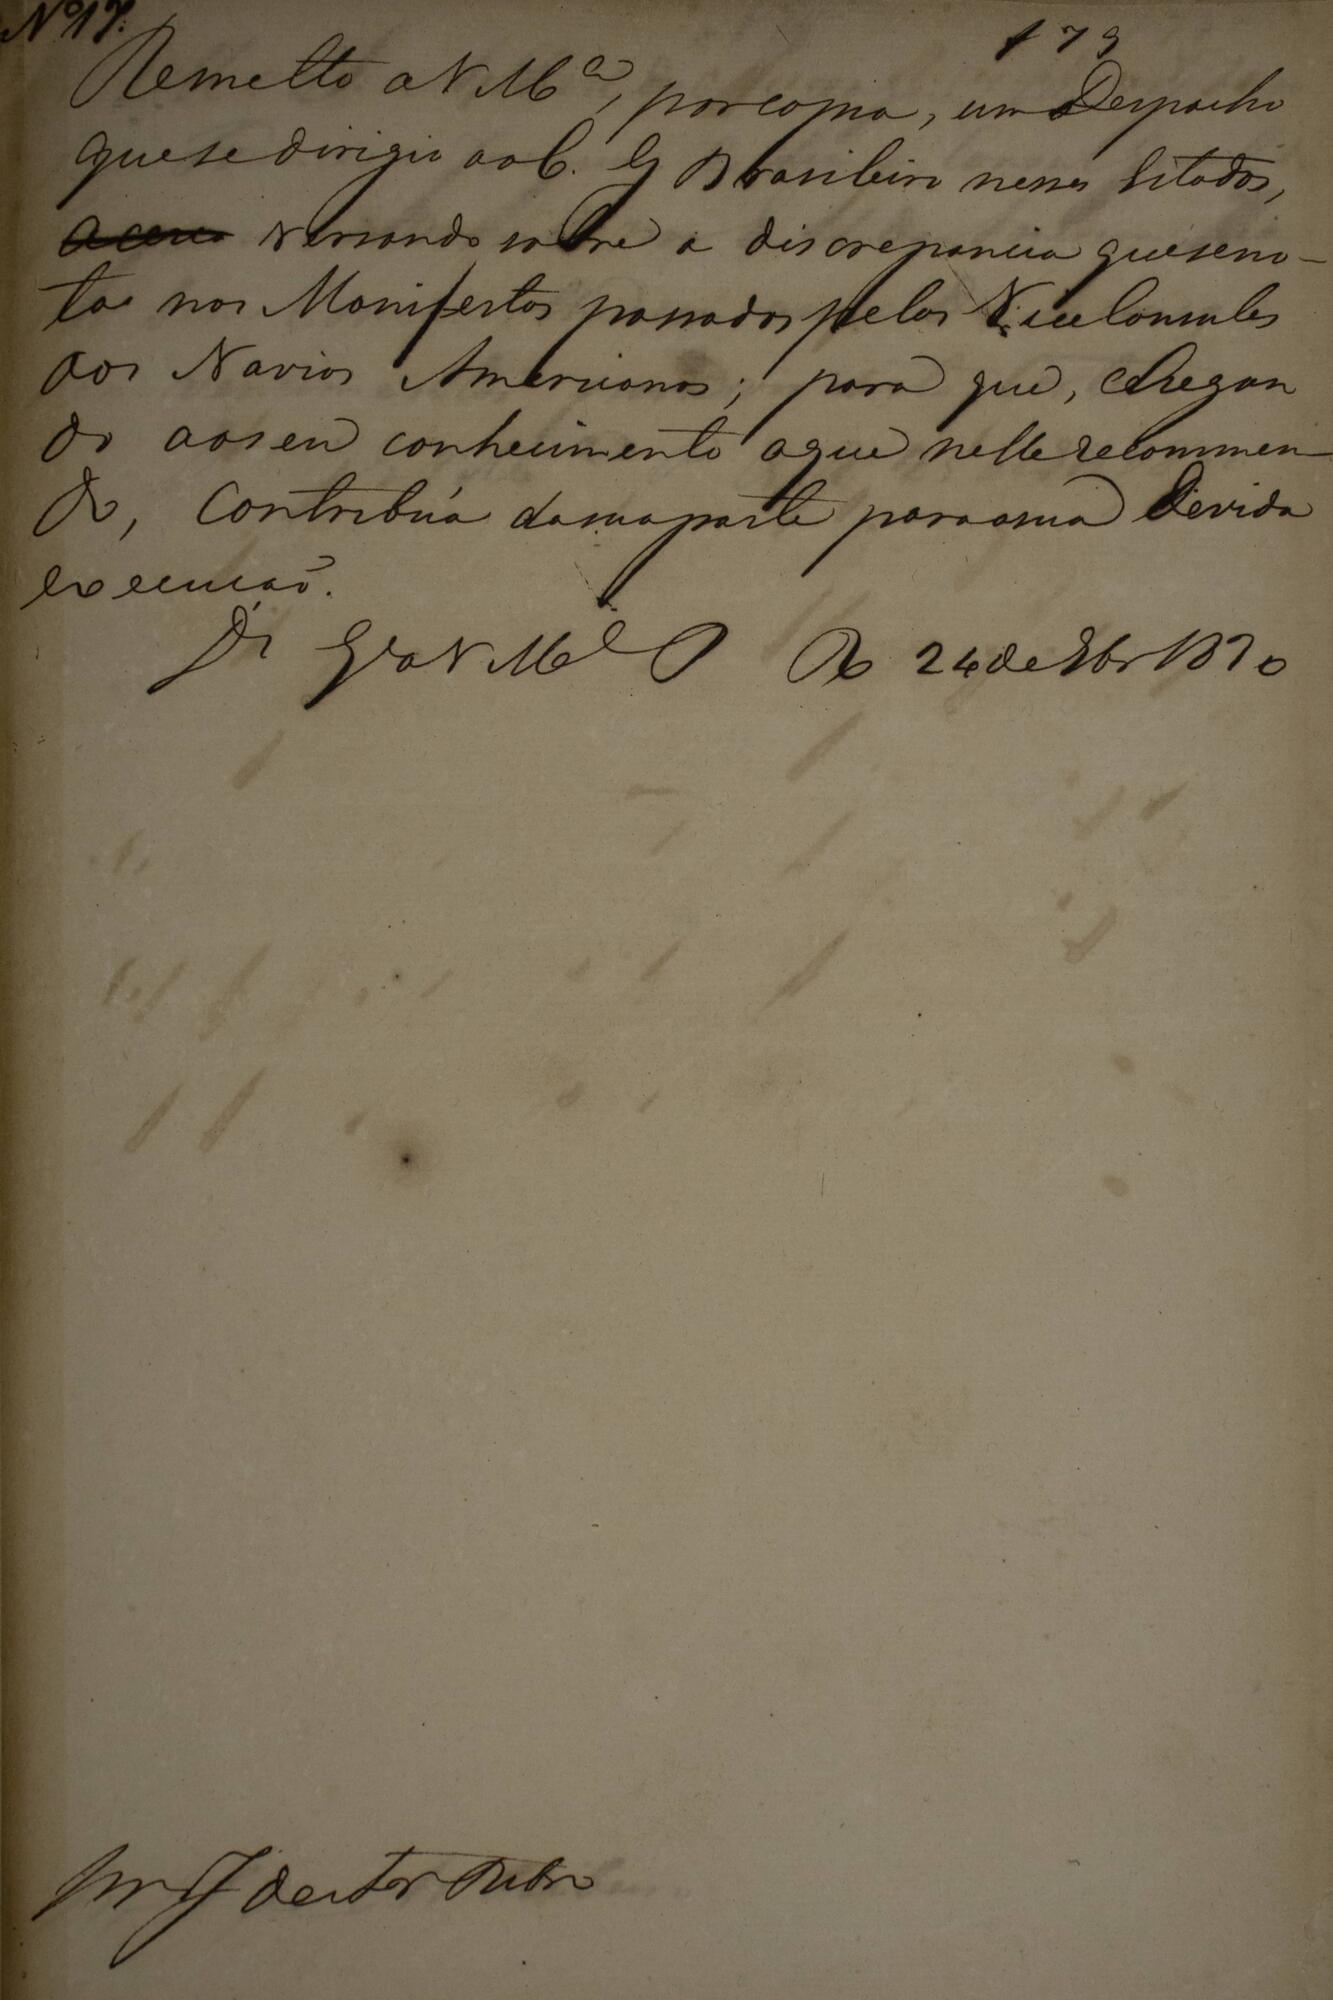 Nº 17.
173
Remetto a V Mce, por copia, um Despacho
que se dirigio ao C. G Brasileiro nesses Estados,
acerca versando sobre a discrepancia que se no-
ta nos Manifestos passados pelos Viceconsules
aos Navios Americanos; para que, chegan
do ao seu conhecimento o que nelle recommen
do, contribúa da sua parte para a sua devida
execução.
Ds Gde a V Mce P Rº 24 de 1830
Snr